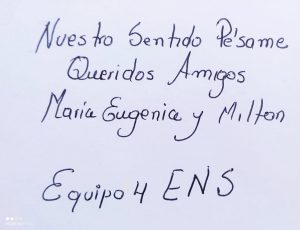 Nuestro Sentido Pésame
Queridos Amigos
María Eugenia y Milton
Equipo 4 ENS